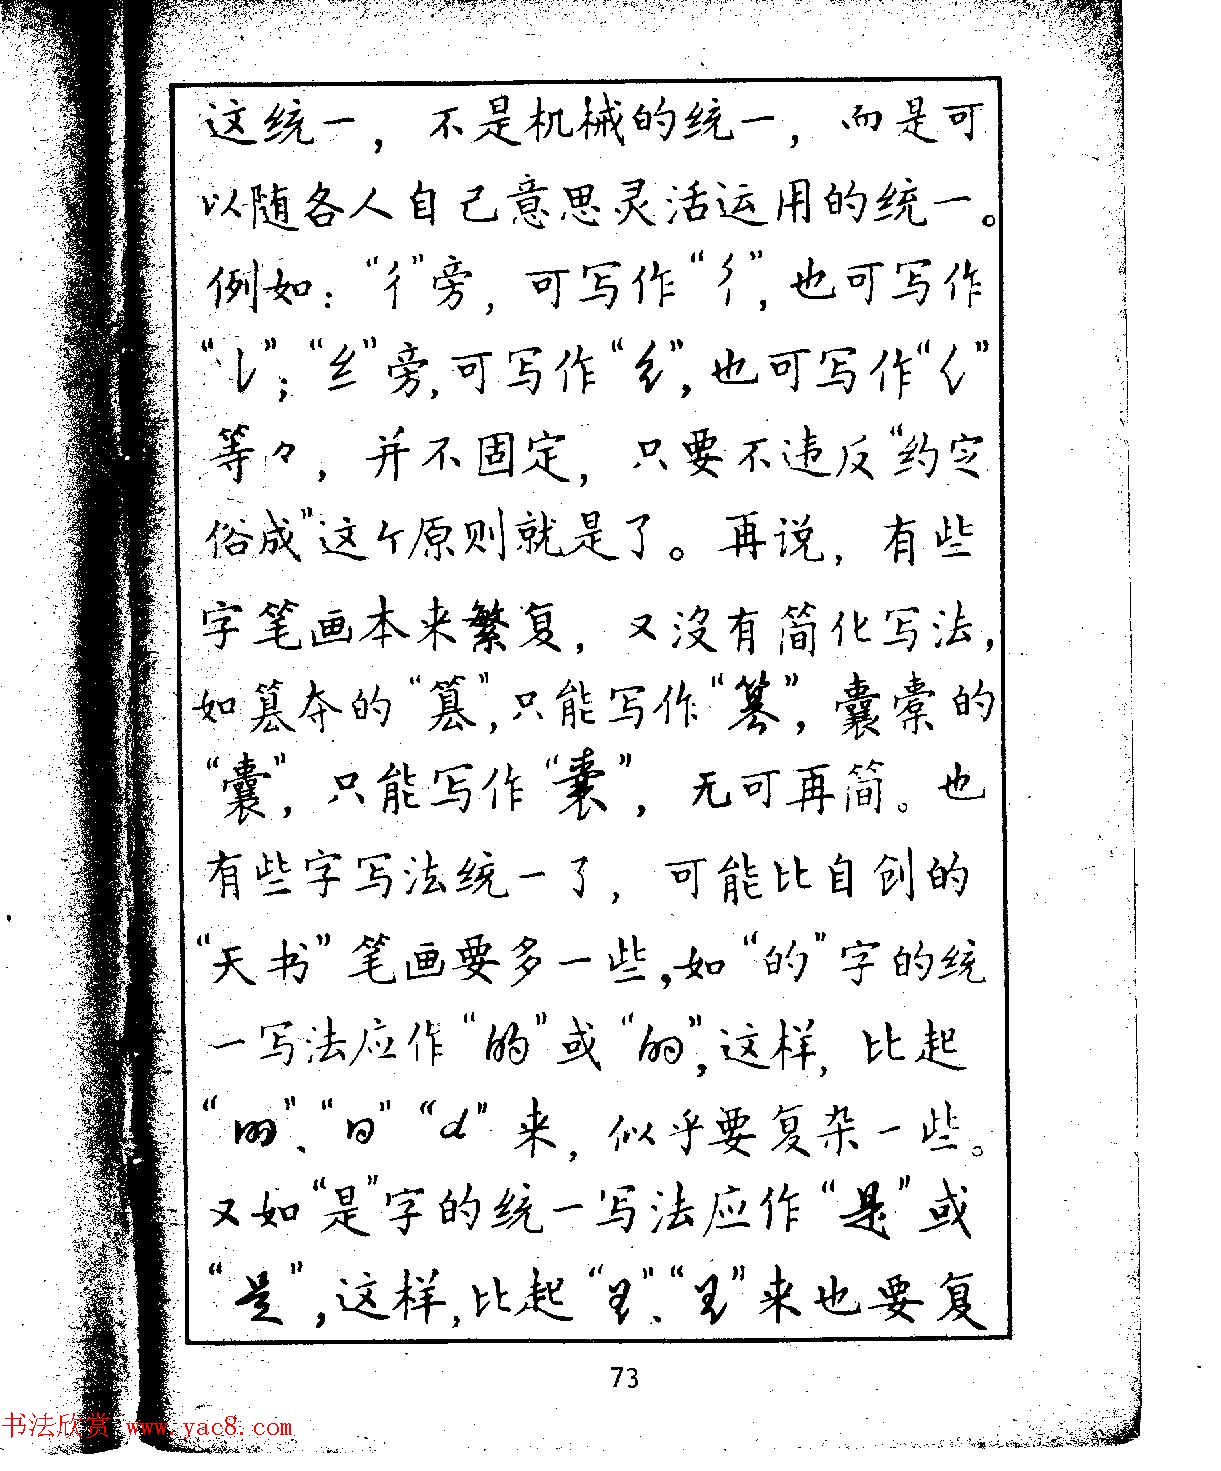 这统一，不是机械的统一，而是可
以随各人自己意思灵活运用的统一。
例如：“彳”旁，可写作“彳”，也可写作
“讠”；“纟”旁，可写作“纟”，也可写作“纟”
等々，并不固定，只要不违反“约定
俗成”这个原则就是了。再说，有些
字笔画本来繁复，又没有简化写法，
如篡夺的“篡”，只能写作“篡”，囊橐的
“囊”，只能写作“囊”，无可再简。也
有些字写法统一了，可能比自创的
“天书”笔画要多一些，如“的”字的统
一写法应作“的”或“的”，这样，比起
“”、“”“d”来，似乎要复杂一些。
又如“是”字的统一写法应作“是”或
“是”，这样，比起“”、“”来也要复
73
书法欣赏 www.yac8.com